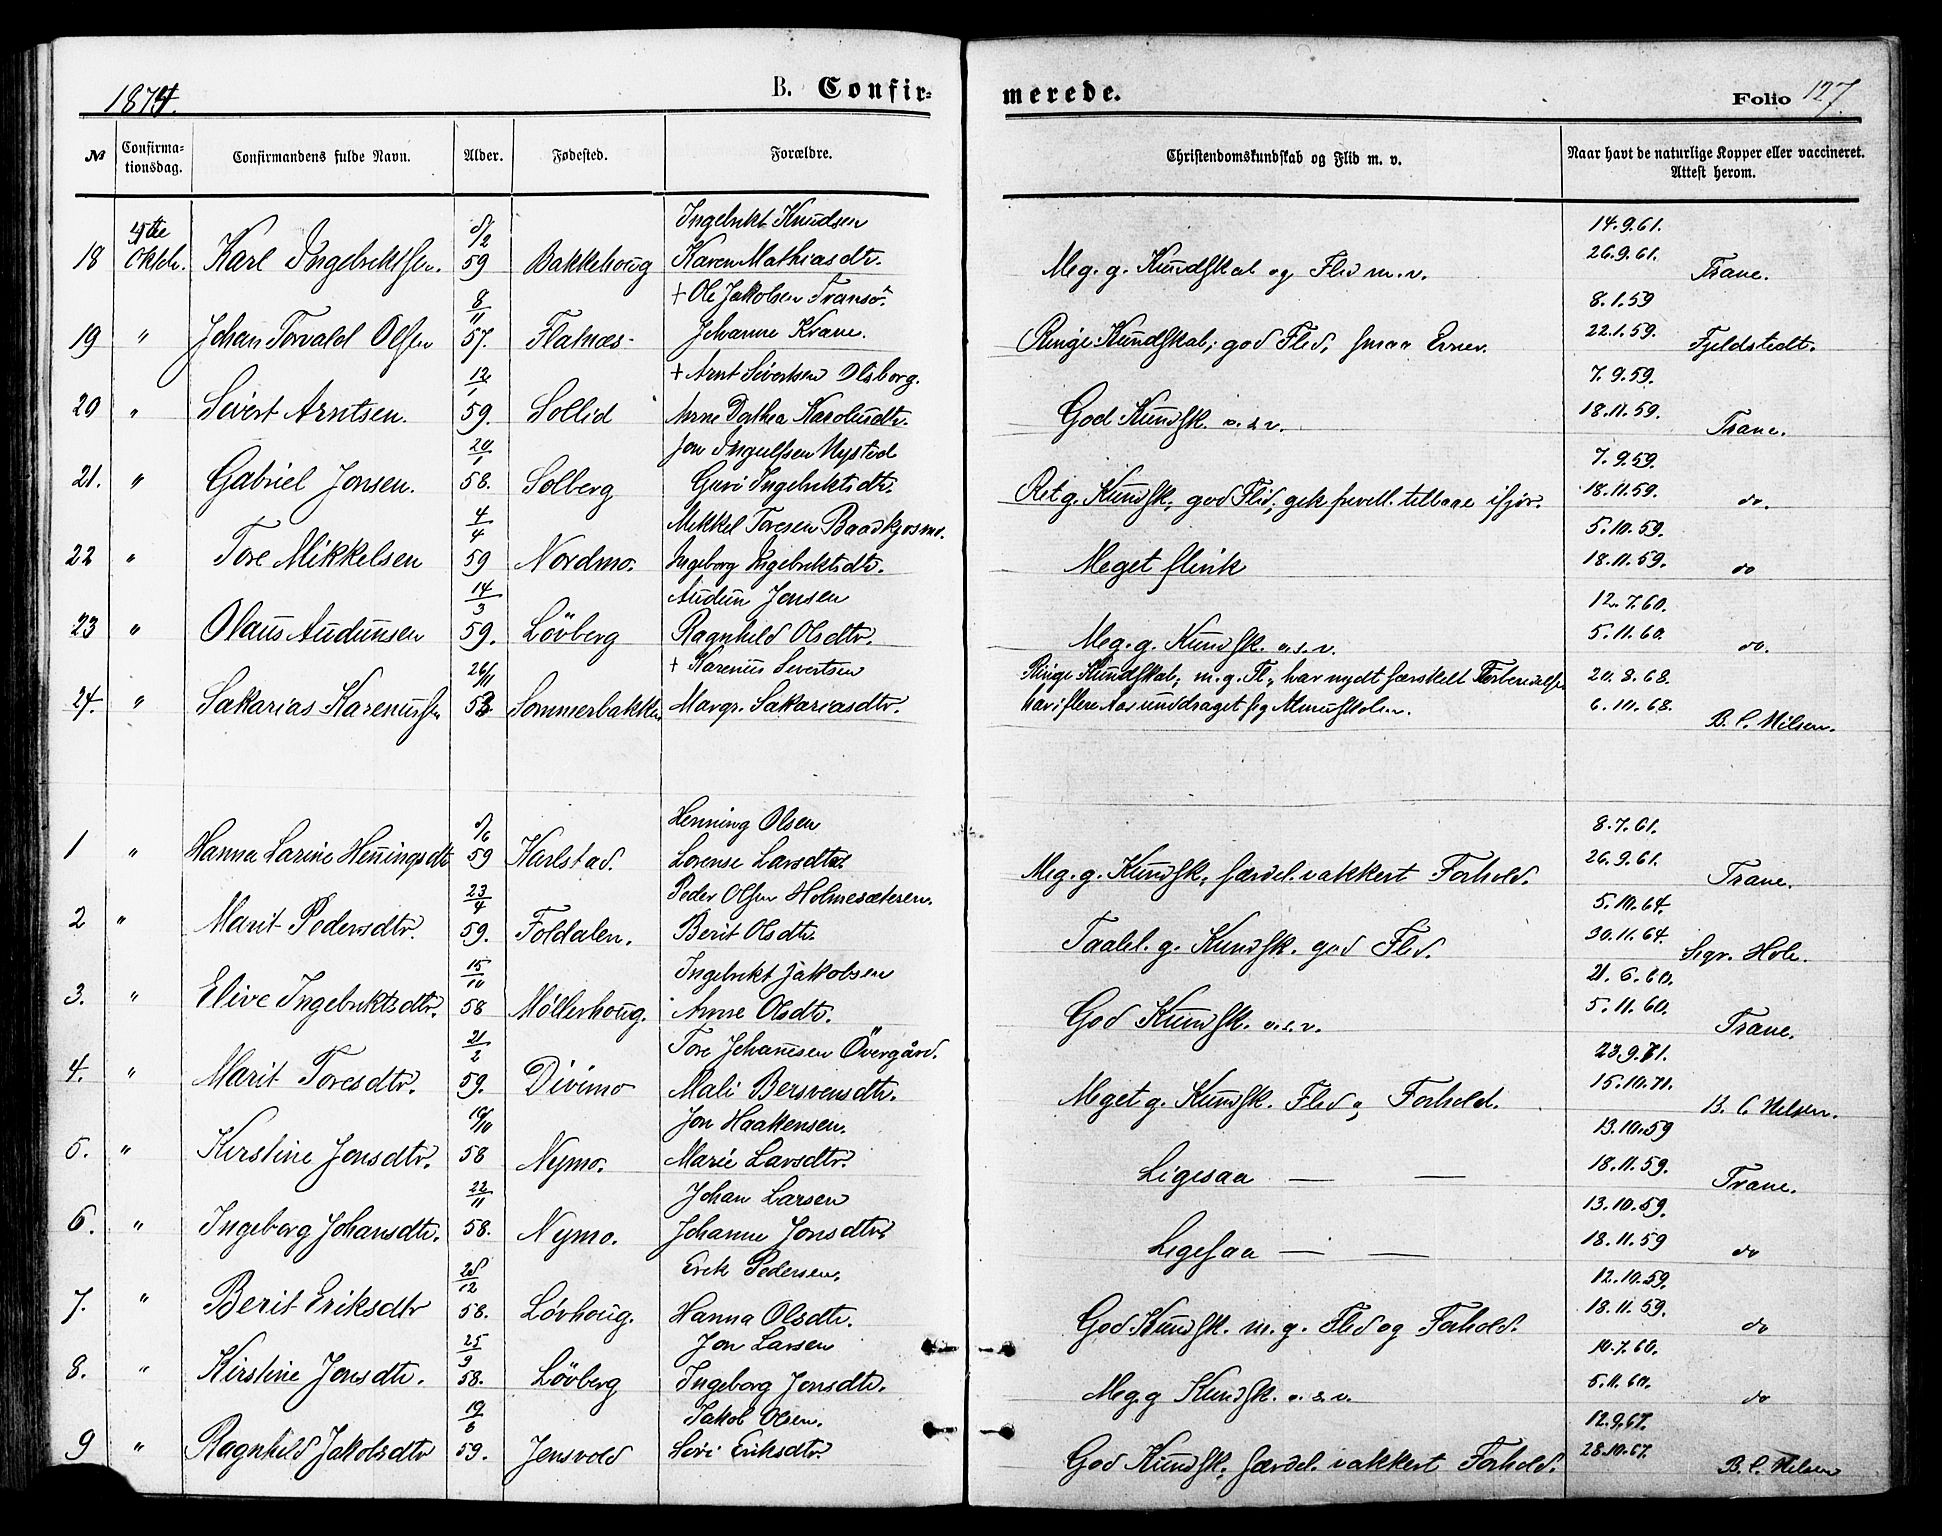 1874.
B. Confirmerede.
Folio 127.
№ Confirmationsdag. Confirmandens fulde Navn. Alder. Fødested. Forældre. Christendomskundskab og Flid m. v. Naar havt de naturlige Kopper eller vaccineret. Attest herom.
4de 8/2 Ingebrikt Knudsen 14.9.61.
18 Oktbr. Karl Ingebriktsen. 59 Bakkehoug Karen Mathiasdtr. Meg. g. Kundskab og Flid m. v. 26.9.61. Trane.
8/11 + Ole Jakobsen Transö. 8.1.59
19 " Johan Torvald Olsen 57. Flatnæs Johanne Krane. Ringe Kundskab, god Flid, smaa Evner. 22.1.59. Fjeldstedt.
12/1 + Arnt Sivertsen Olsborg. 7.9.59.
20 " Sivert Arntsen. 59. Sollid Anne Dorthea Karolusdtr. God Kundsk. o.s.v. 18.11.59. Trane.
20/1 Jon Ingulfsen Nysted 7.9.59.
21. " Gabriel Jonsen. 58. Solberg Guri Ingebriktsdtr. Ret g. Kundsk, god Flid, gik frivill. tilbage ifjor. 18.11.59. do.
4/4 Mikkel Toresen Baadkjosmo. 5.10.59.
22 " Tore Mikkelsen 59 Nordmo. Ingeborg Ingebriktsdtr. Meget flink 18.11.59. do
14/3 Audun Jonsen 12.7.60.
23 " Olaus Audunsen 59. Lövberg Ragnhild Olsdtr. Meg. g. Kundsk. o.s.v. 5.11.60. do.
26/11 + Karenus Sivertsen Ringe Kundskab, m. g. Fl., har nydt særskilt Forberedelse 20.8.68.
24. " Sakarias Karenussen Sommerbakken Margr. Sakariasdtr. har i flere Aar unddraget sig Almueskolen. 6.10.68. B. C. Nilsen.
8/6 Henning Olsen 8.7.61.
1 " Hanna Larine Henningsdtr 59 Karlstad. Lorense Larsdtr Meg. g. Kundsk, særdel. vakkert Forhold. 26.9.61. Trane.
23/4 Peder Olsen Holmesæteren. 5.10.64.
2 " Marit Pedersdtr. 59. Foldalen. Berit Olsdtr. Taalel. g. Kundsk. god Flid. 30.11.64. Sigr. Hole.
15/10 Ingebrikt Jakobsen 21.6.60.
3. " Elive Ingebriktsdtr. 58 Møllerhoug. Anne Olsdtr. God Kundsk. o.s.v. 5.11.60. Trane.
21/2 Tore Johansen Övergård. 23.9.71.
4. " Marit Toresdtr. 59. Divimo Mali Bersvensdtr. Meget g. Kundsk. Flid og Forhold. 15.10.71. B. C. Nilsen.
19/10 Jon Haakensen. 13.10.59
5. " Kirstine Jonsdtr. 58 Nymo. Marie Larsdtr. Ligesaa — — 18.11.59. Trane.
22/11 Johan Larsen 13.10.59.
6. " Ingeborg Johansdtr. 58. Nymo. Johanne Jonsdtr Ligesaa — — 18.11.59 do
28/12 Erik Pedersen. 12.10.59.
7. " Berit Eriksdtr 58. Lövhoug. Hanna Olsdtr. God Kundsk. m. g. Flid og Forhold. 18.11.59. do
25/9 Jon Larsen 10.7.60.
8. " Kirstine Jonsdtr. 58. Lövberg Ingeborg Jonsdtr. Meg. g Kundsk. o.s.v. 5.11.60. do
19/6 Jakob Olsen. 12.9.67.
9 " Ragnhild Jakobsdtr 59. Jensvold Siri Eriksdtr. God Kundsk, særdel. vakkert Forhold. 28.10.67. B. C. Nilsen